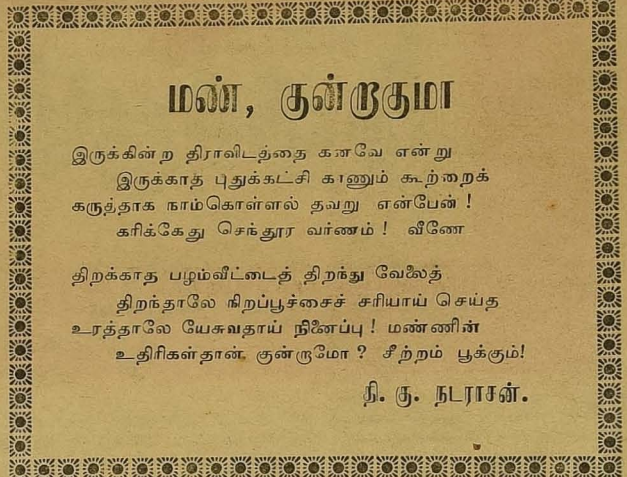 மண், குன்றாகுமா
இருக்கின்ற திராவிடத்தை கனவே என்று
இருக்காத புதுக்கட்சி காணும் கூற்றைக்
கருத்தாக நாம்கொள்ளல் தவறு என்பேன் !
கரிக்கேது செந்தூர வர்ணம் ! வீணே
திறக்காத பழம்வீட்டைத் திறந்து வேலைத்
திறந்தாலே நிறப்பூச்சைச் சரியாய் செய்த
உரத்தாலே யேசுவதாய் நினைப்பு ! மண்ணின்
உதிரிகள்தான் குன்றாமோ ? சீற்றம் பூக்கும்!
தி. கு. நடராசன்.